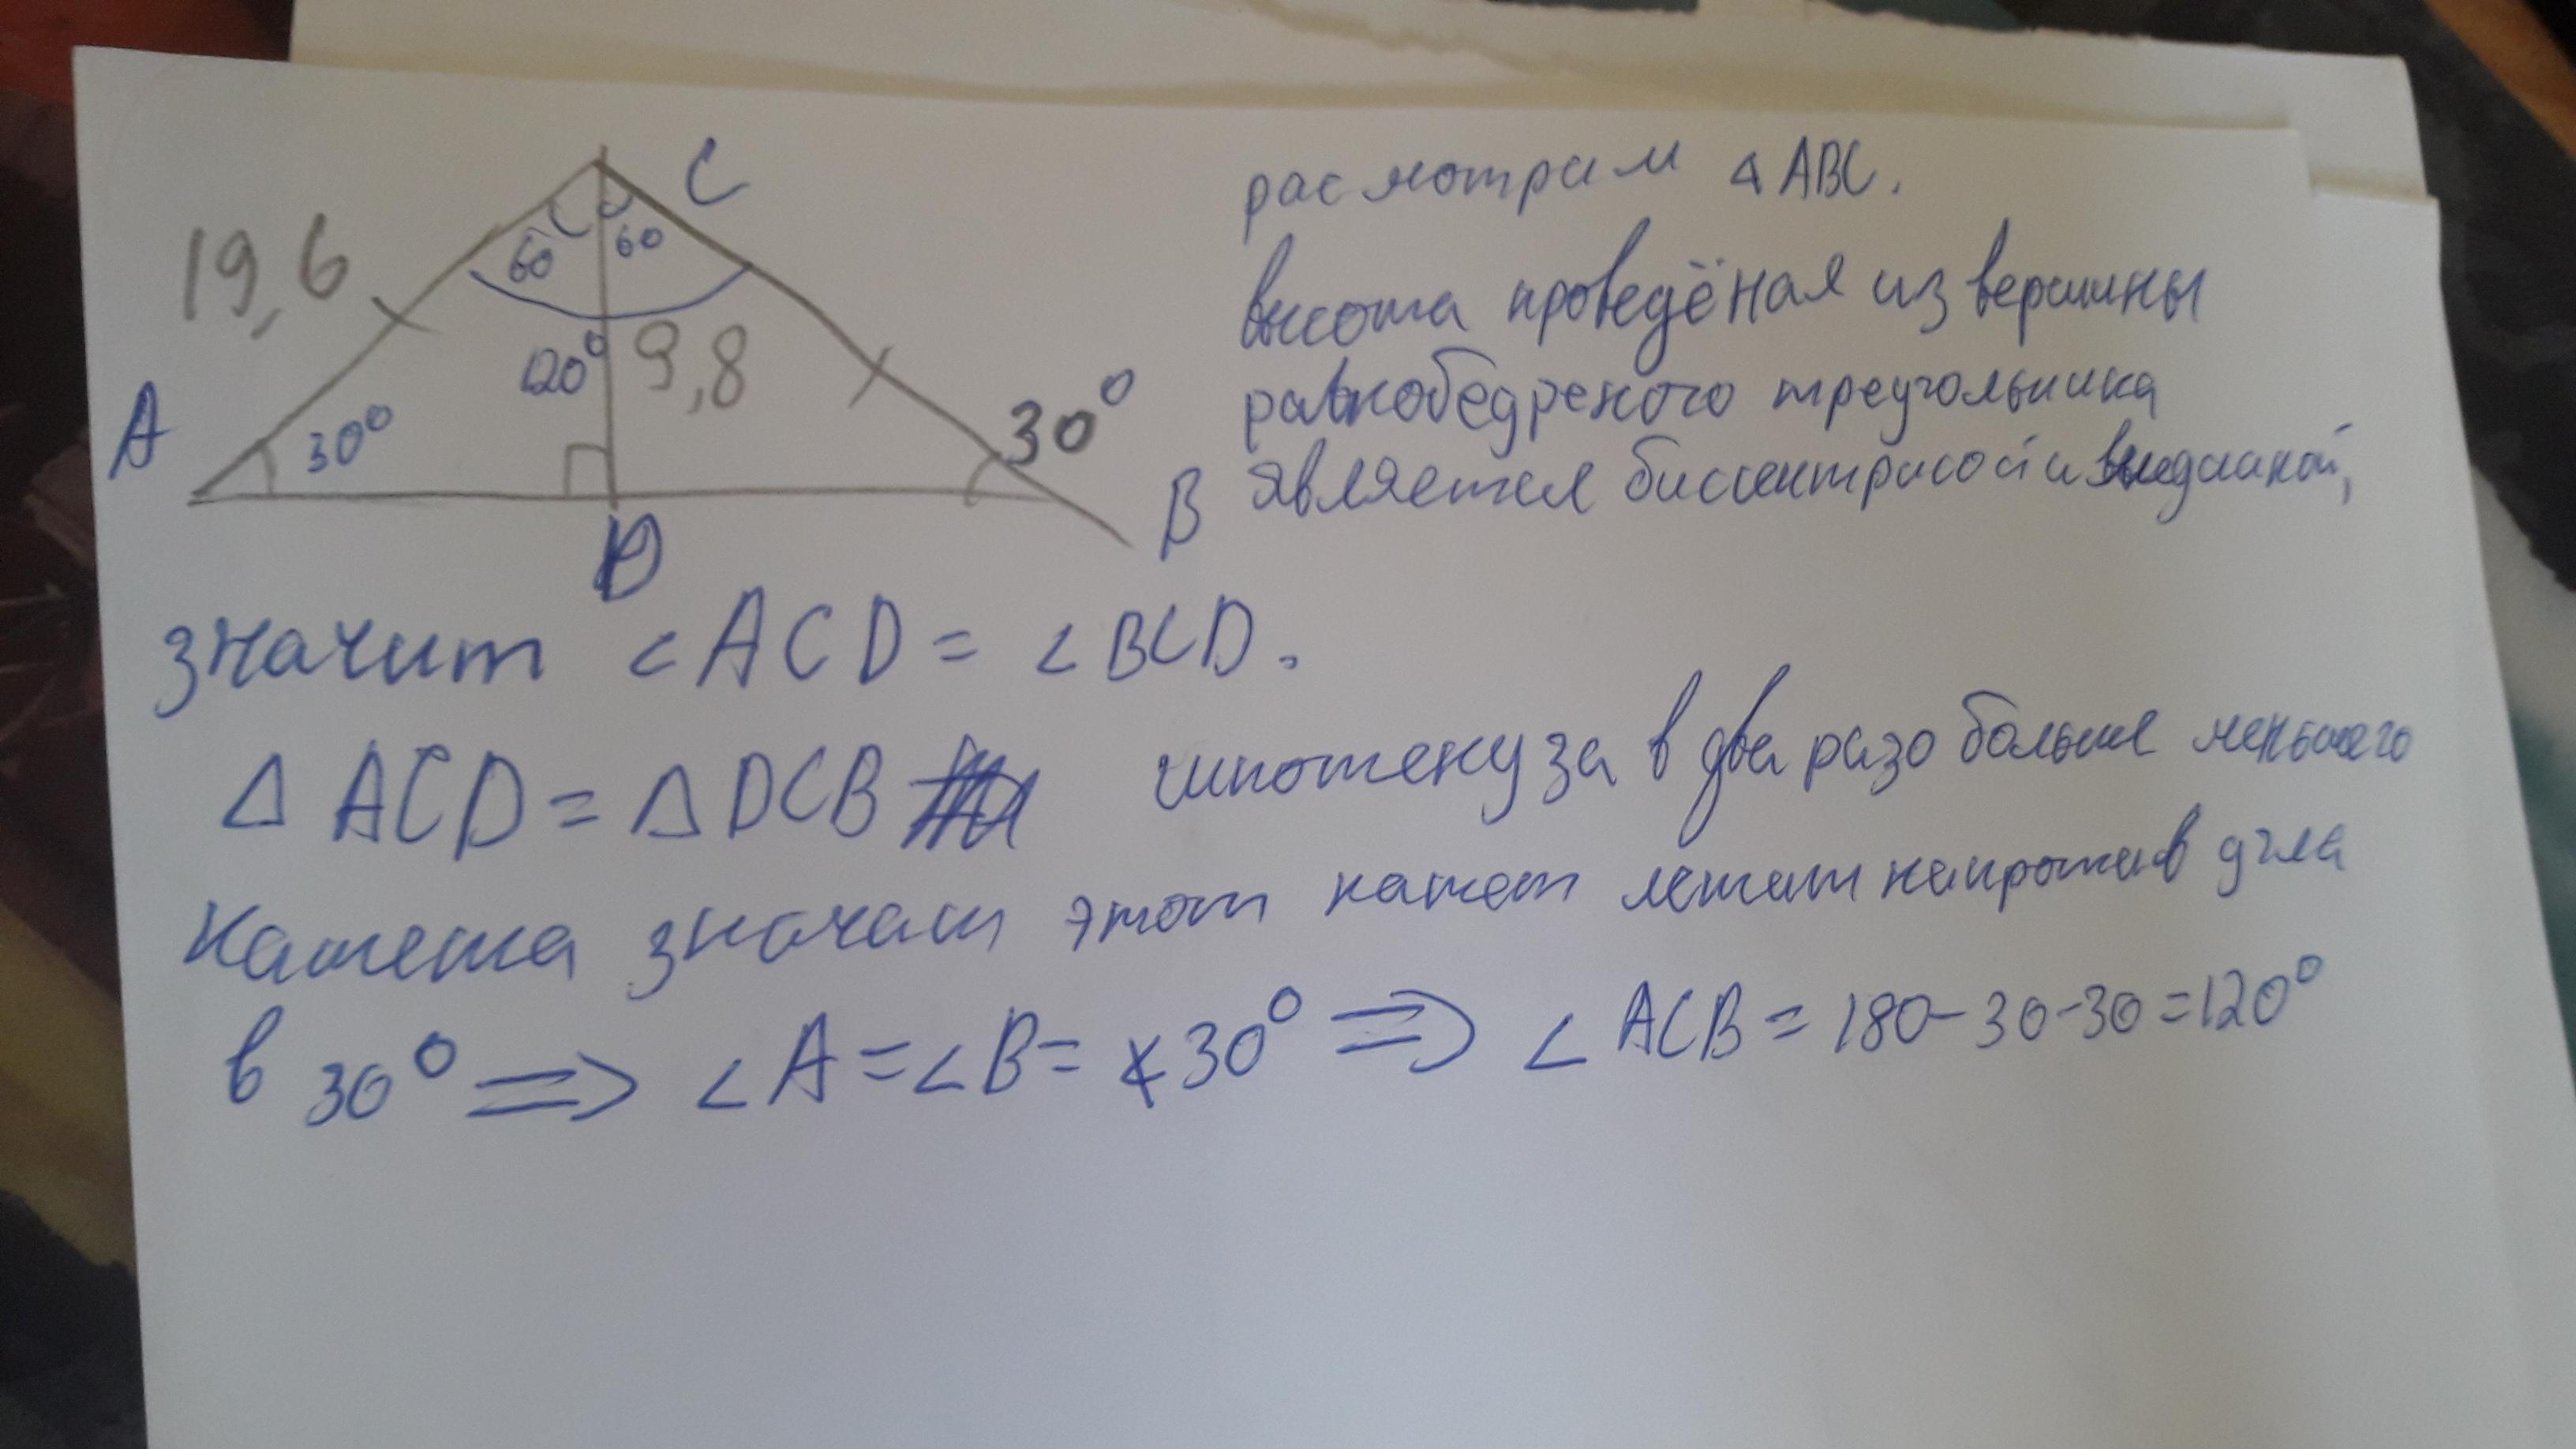 C
19,6
60
60
120°
9,8
A
30°
30°
B
D
расмотрим △ABC.
высота проведёная из вершины
равнобедреного треугольника
является биссектрисой и медианой,
значит <ACD = <BCD.
△ ACD = △ DCB гипотенуза в два раза больше меньшего
катета значит этот катет лежит напротив угла
в 30° => <A = <B = 30° => < ACB = 180-30-30=120°